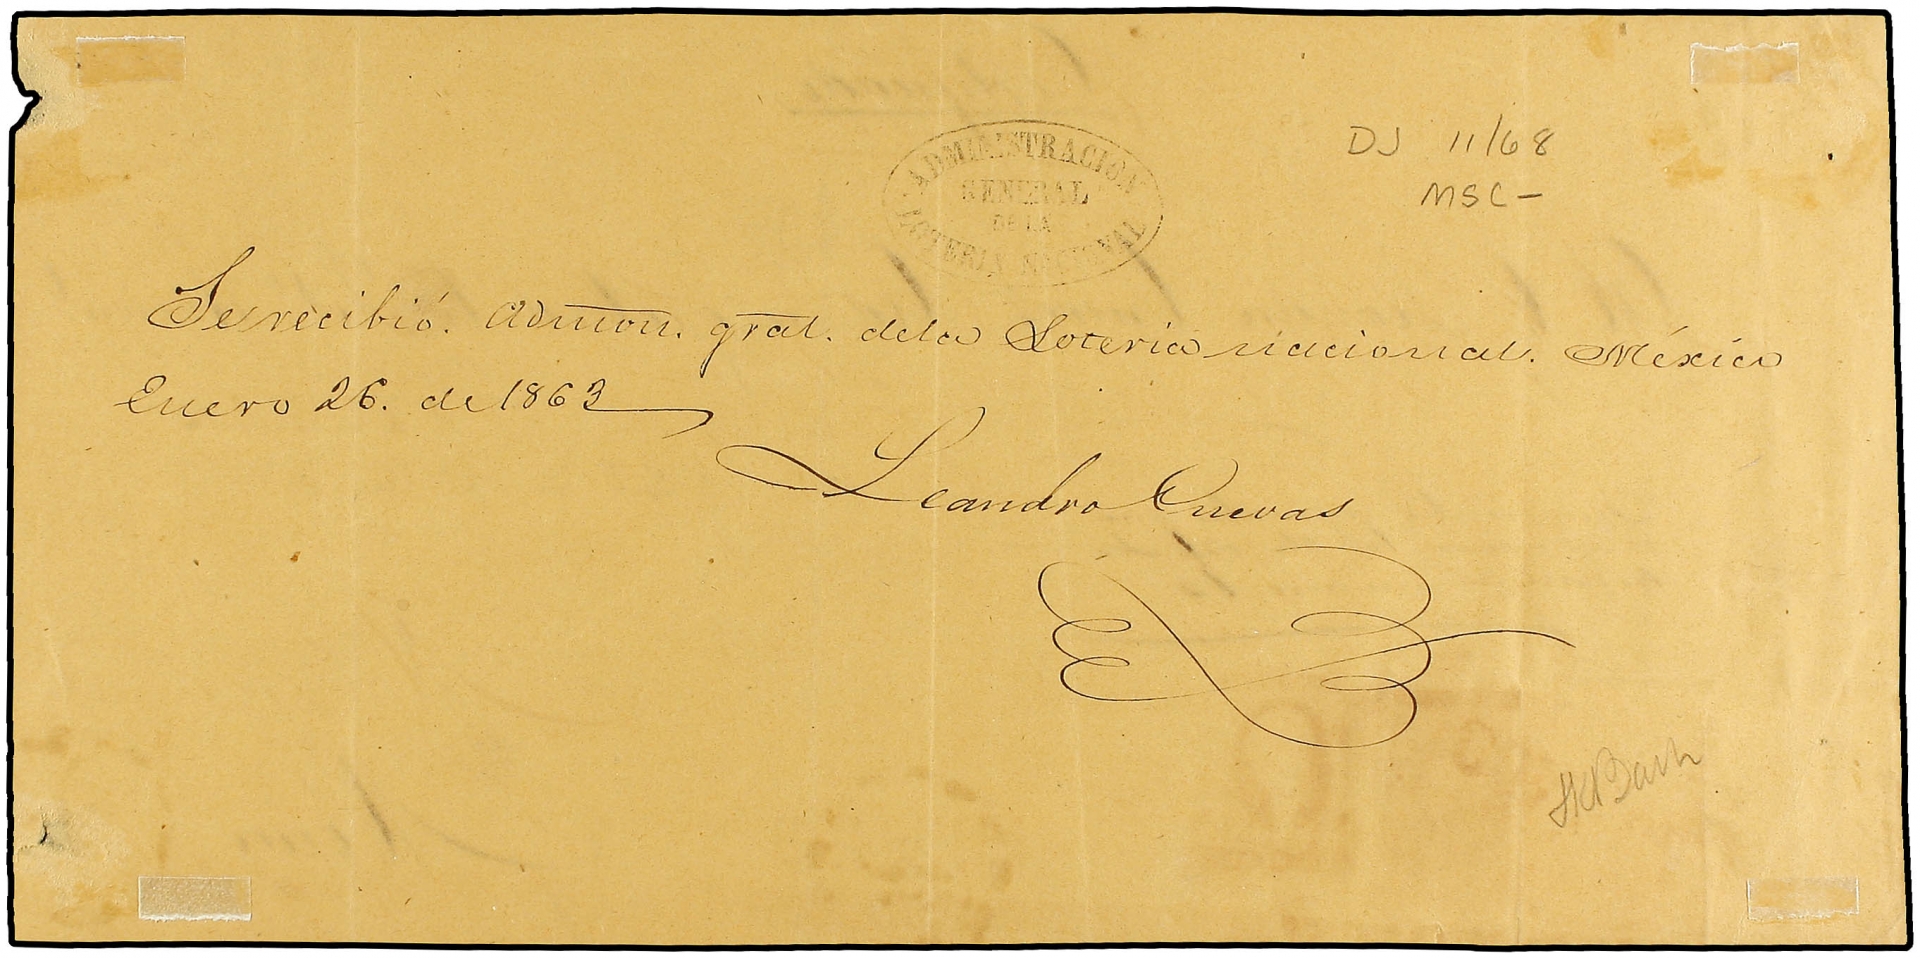 ADMINISTRACION
GENERAL
DE LA
LOTERIA NACIONAL
DJ 11/68
MSC-
Se recibió. Admon. gral. de la Loteria nacional. México
Enero 26. de 1863
Leandro Cuevas